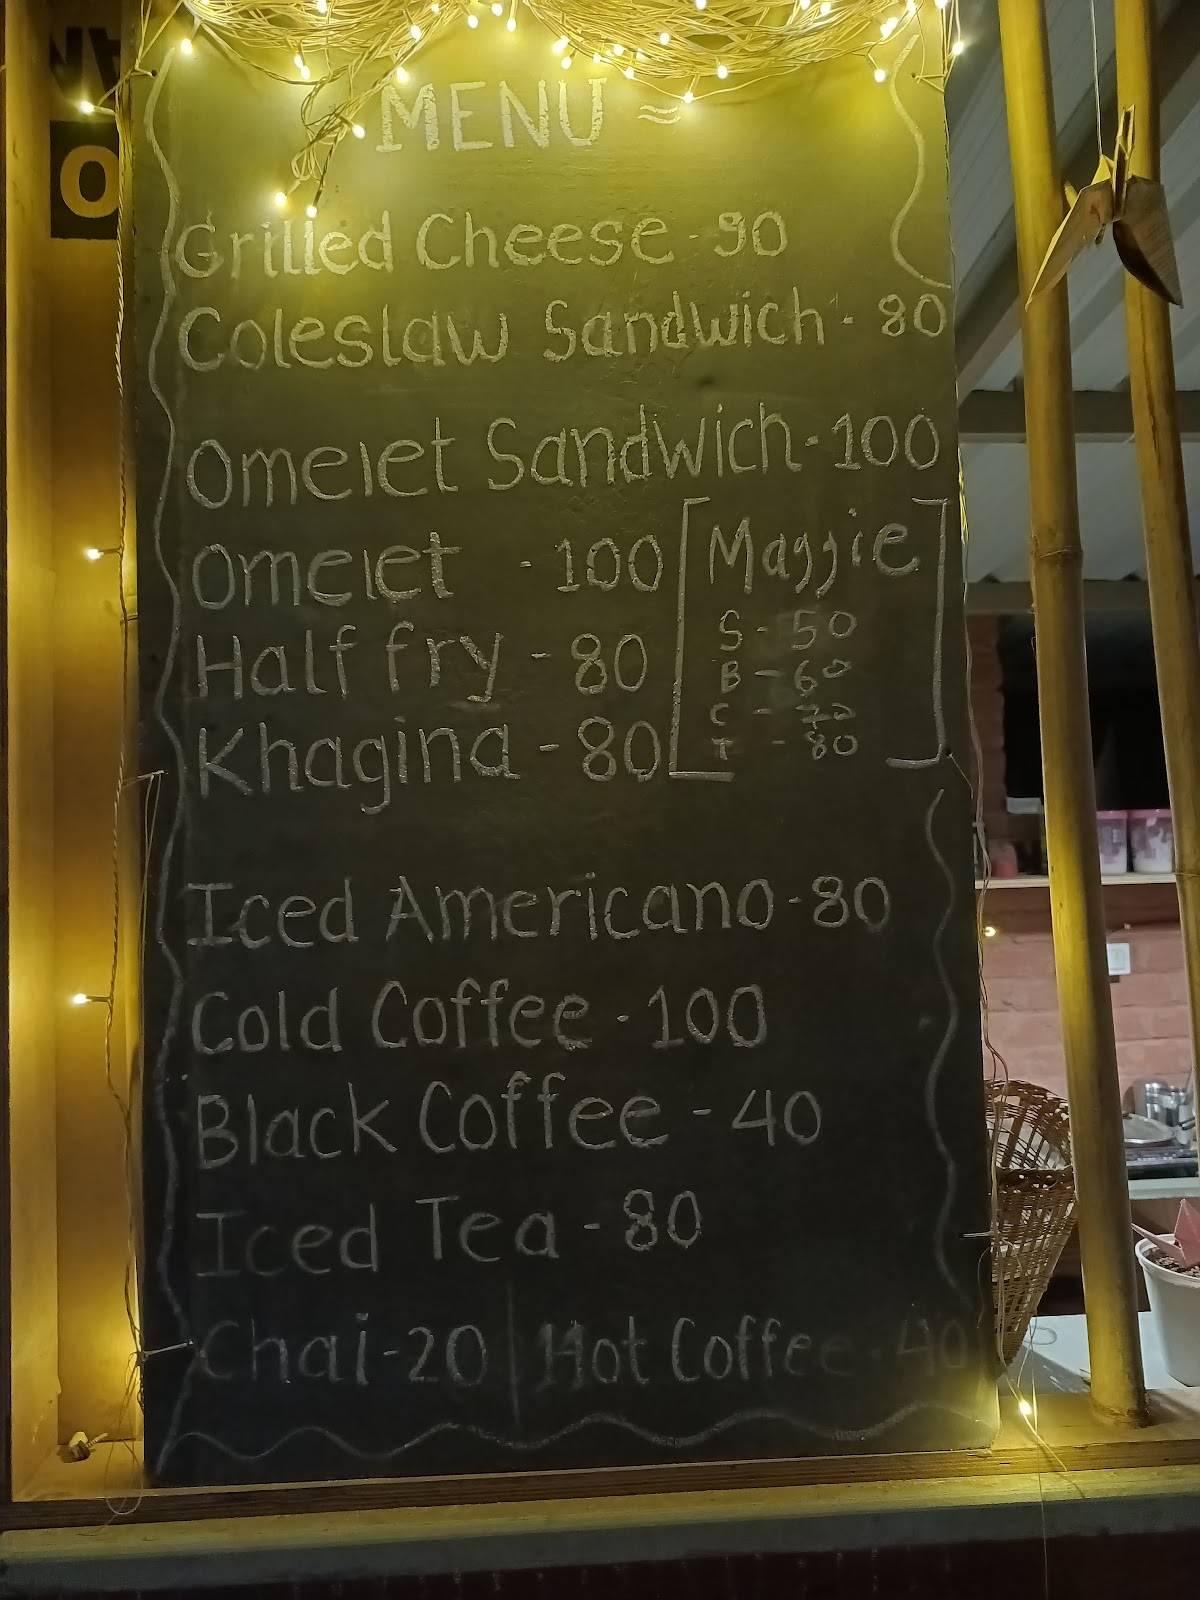 MENU
Grilled Cheese - 90
Coleslaw Sandwich - 80
Omelet Sandwich - 100
Omelet - 100
Half fry - 80
Khagina - 80
Maggie
S - 50
B - 60
C - 70
T - 80
Iced Americano - 80
Cold Coffee - 100
Black Coffee - 40
Iced Tea - 80
Chai - 20 | Hot Coffee - 40